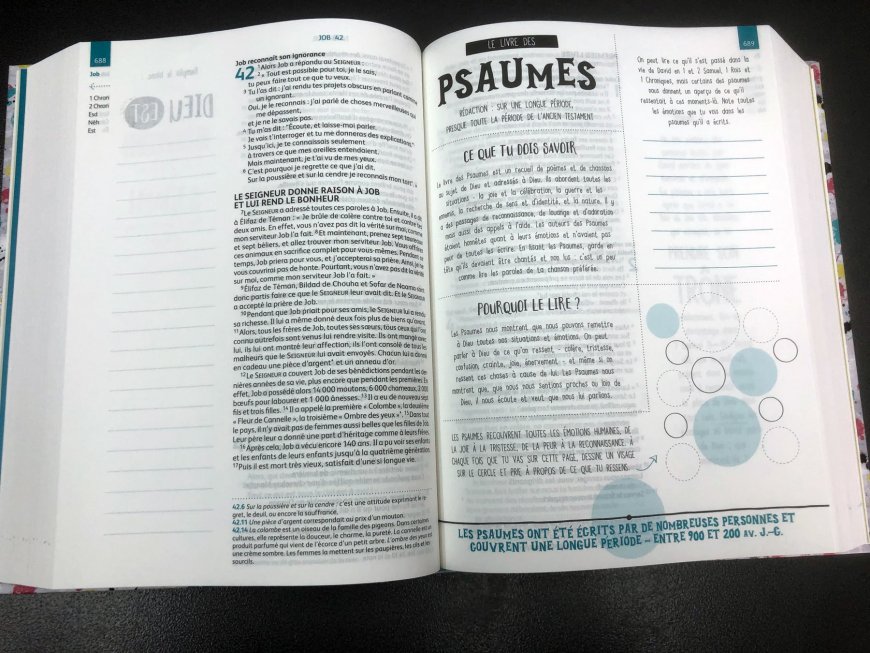 688
JOB 42
Job
1 Chron
2 Chron
Esd
Néh
Est
Job reconnaît son ignorance
42 1 Alors Job a répondu au SEIGNEUR :
2 « Tout est possible pour toi, je le sais,
tu peux faire tout ce que tu veux.
3 Tu l'as dit : j'ai rendu tes projets obscurs en parlant comme
un ignorant.
Oui, je le reconnais : j'ai parlé de choses merveilleuses qui
me dépassent,
et je ne le savais pas.
4 Tu m'as dit : “Écoute, et laisse-moi parler.
Je vais t'interroger et tu me donneras des explications.”
5 Jusqu'ici, je te connaissais seulement
à travers ce que mes oreilles entendaient.
Mais maintenant, je t'ai vu de mes yeux.
6 C'est pourquoi je regrette ce que j'ai dit.
Sur la poussière et sur la cendre je reconnais mon tort*. »
LE SEIGNEUR DONNE RAISON À JOB
ET LUI REND LE BONHEUR
7 Le SEIGNEUR a adressé toutes ces paroles à Job. Ensuite, il a dit
à Élifaz de Téman : « Je brûle de colère contre toi et contre tes
deux amis. En effet, vous n'avez pas dit la vérité sur moi, comme
mon serviteur Job l'a fait. 8 Et maintenant, prenez sept taureaux
et sept béliers, et allez trouver mon serviteur Job. Vous offrirez
ces animaux en sacrifice complet pour vous-mêmes. Pendant ce
temps, Job priera pour vous, et j'accepterai sa prière. Ainsi, je ne
vous couvrirai pas de honte. Pourtant, vous n'avez pas dit la vérité
sur moi, comme mon serviteur Job l'a fait. »
9 Élifaz de Téman, Bildad de Chouha et Sofar de Naama sont
donc partis faire ce que le SEIGNEUR leur avait dit. Et le SEIGNEUR
a accepté la prière de Job.
10 Pendant que Job priait pour ses amis, le SEIGNEUR lui a rendu
sa richesse. Il lui a même donné deux fois plus de biens qu'avant.
11 Alors, tous les frères de Job, toutes ses sœurs, tous ceux qui l'ont
connu autrefois sont venus lui rendre visite. Ils ont mangé avec
lui, ils lui ont montré leur affection, ils l'ont consolé de tous les
malheurs que le SEIGNEUR lui avait envoyés. Chacun lui a donné
en cadeau une pièce d'argent* et un anneau d'or.
12 Le SEIGNEUR a couvert Job de ses bénédictions pendant les der-
nières années de sa vie, plus encore que pendant les premières. En
effet, Job a possédé alors 14 000 moutons, 6 000 chameaux, 2 000
bœufs pour labourer et 1 000 ânesses. 13 Il a eu de nouveau sept
fils et trois filles. 14 Il a appelé la première « Colombe », la deuxième
« Fleur de Cannelle », la troisième « Ombre des yeux »*. 15 Dans tout
le pays, il n'y avait pas de femmes aussi belles que les filles de Job.
Leur père leur a donné une part d'héritage comme à leurs frères.
16 Après cela, Job a vécu encore 140 ans. Il a pu voir ses enfants
et les enfants de leurs enfants jusqu'à la quatrième génération.
17 Puis il est mort très vieux, satisfait d'une si longue vie.
42.6 Sur la poussière et sur la cendre : c'est une attitude exprimant le re-
gret, le deuil, ou encore la souffrance.
42.11 Une pièce d'argent correspondait au prix d'un mouton.
42.14 La colombe est un oiseau de la famille des pigeons. Dans certaines
cultures, elle représente la douceur, le charme, la pureté. La cannelle est un
produit parfumé qui vient de l'écorce d'un petit arbre. L'ombre des yeux est
une crème sombre. Les femmes la mettent sur les paupières, les cils et les
sourcils.
689
LE LIVRE DES
PSAUMES
RÉDACTION : SUR UNE LONGUE PÉRIODE,
PRESQUE TOUTE LA PÉRIODE DE L'ANCIEN TESTAMENT
CE QUE TU DOIS SAVOIR
Le livre des Psaumes est un recueil de poèmes et de chansons
au sujet de Dieu et adressés à Dieu. Ils abordent toutes les
situations : la joie et la célébration, la guerre et les
ennemis, la recherche de sens et d'identité, et la nature. Il y
a des passages de reconnaissance, de louange et d'adoration
mais aussi des appels à l'aide. Les auteurs des Psaumes
étaient honnêtes quant à leurs émotions et n'avaient pas
peur de toutes les écrire. En lisant les Psaumes, garde en
tête qu'ils devaient être chantés et non lus : c'est un peu
comme lire les paroles de ta chanson préférée.
POURQUOI LE LIRE ?
Les Psaumes nous montrent que nous pouvons remettre
à Dieu toutes nos situations et émotions. On peut
parler à Dieu de ce qu'on ressent – colère, tristesse,
confusion, crainte, joie, énervement – et même si on
ressent ces choses à cause de lui. Les Psaumes nous
montrent que, que nous nous sentions proches ou loin de
Dieu, il nous écoute et veut que nous lui parlions.
LES PSAUMES RECOUVRENT TOUTES LES ÉMOTIONS HUMAINES, DE
LA JOIE À LA TRISTESSE, DE LA PEUR À LA RECONNAISSANCE. À
CHAQUE FOIS QUE TU VAS SUR CETTE PAGE, DESSINE UN VISAGE
SUR LE CERCLE ET PRIE À PROPOS DE CE QUE TU RESSENS.
On peut lire ce qu'il s'est passé dans la
vie de David en 1 et 2 Samuel, 1 Rois et
1 Chroniques, mais certains des psaumes
nous donnent un aperçu de ce qu'il
ressentait à ces moments-là. Note toutes
les émotions que tu vois dans les
psaumes qu'il a écrits.
LES PSAUMES ONT ÉTÉ ÉCRITS PAR DE NOMBREUSES PERSONNES ET
COUVRENT UNE LONGUE PÉRIODE – ENTRE 900 ET 200 AV. J.-C.